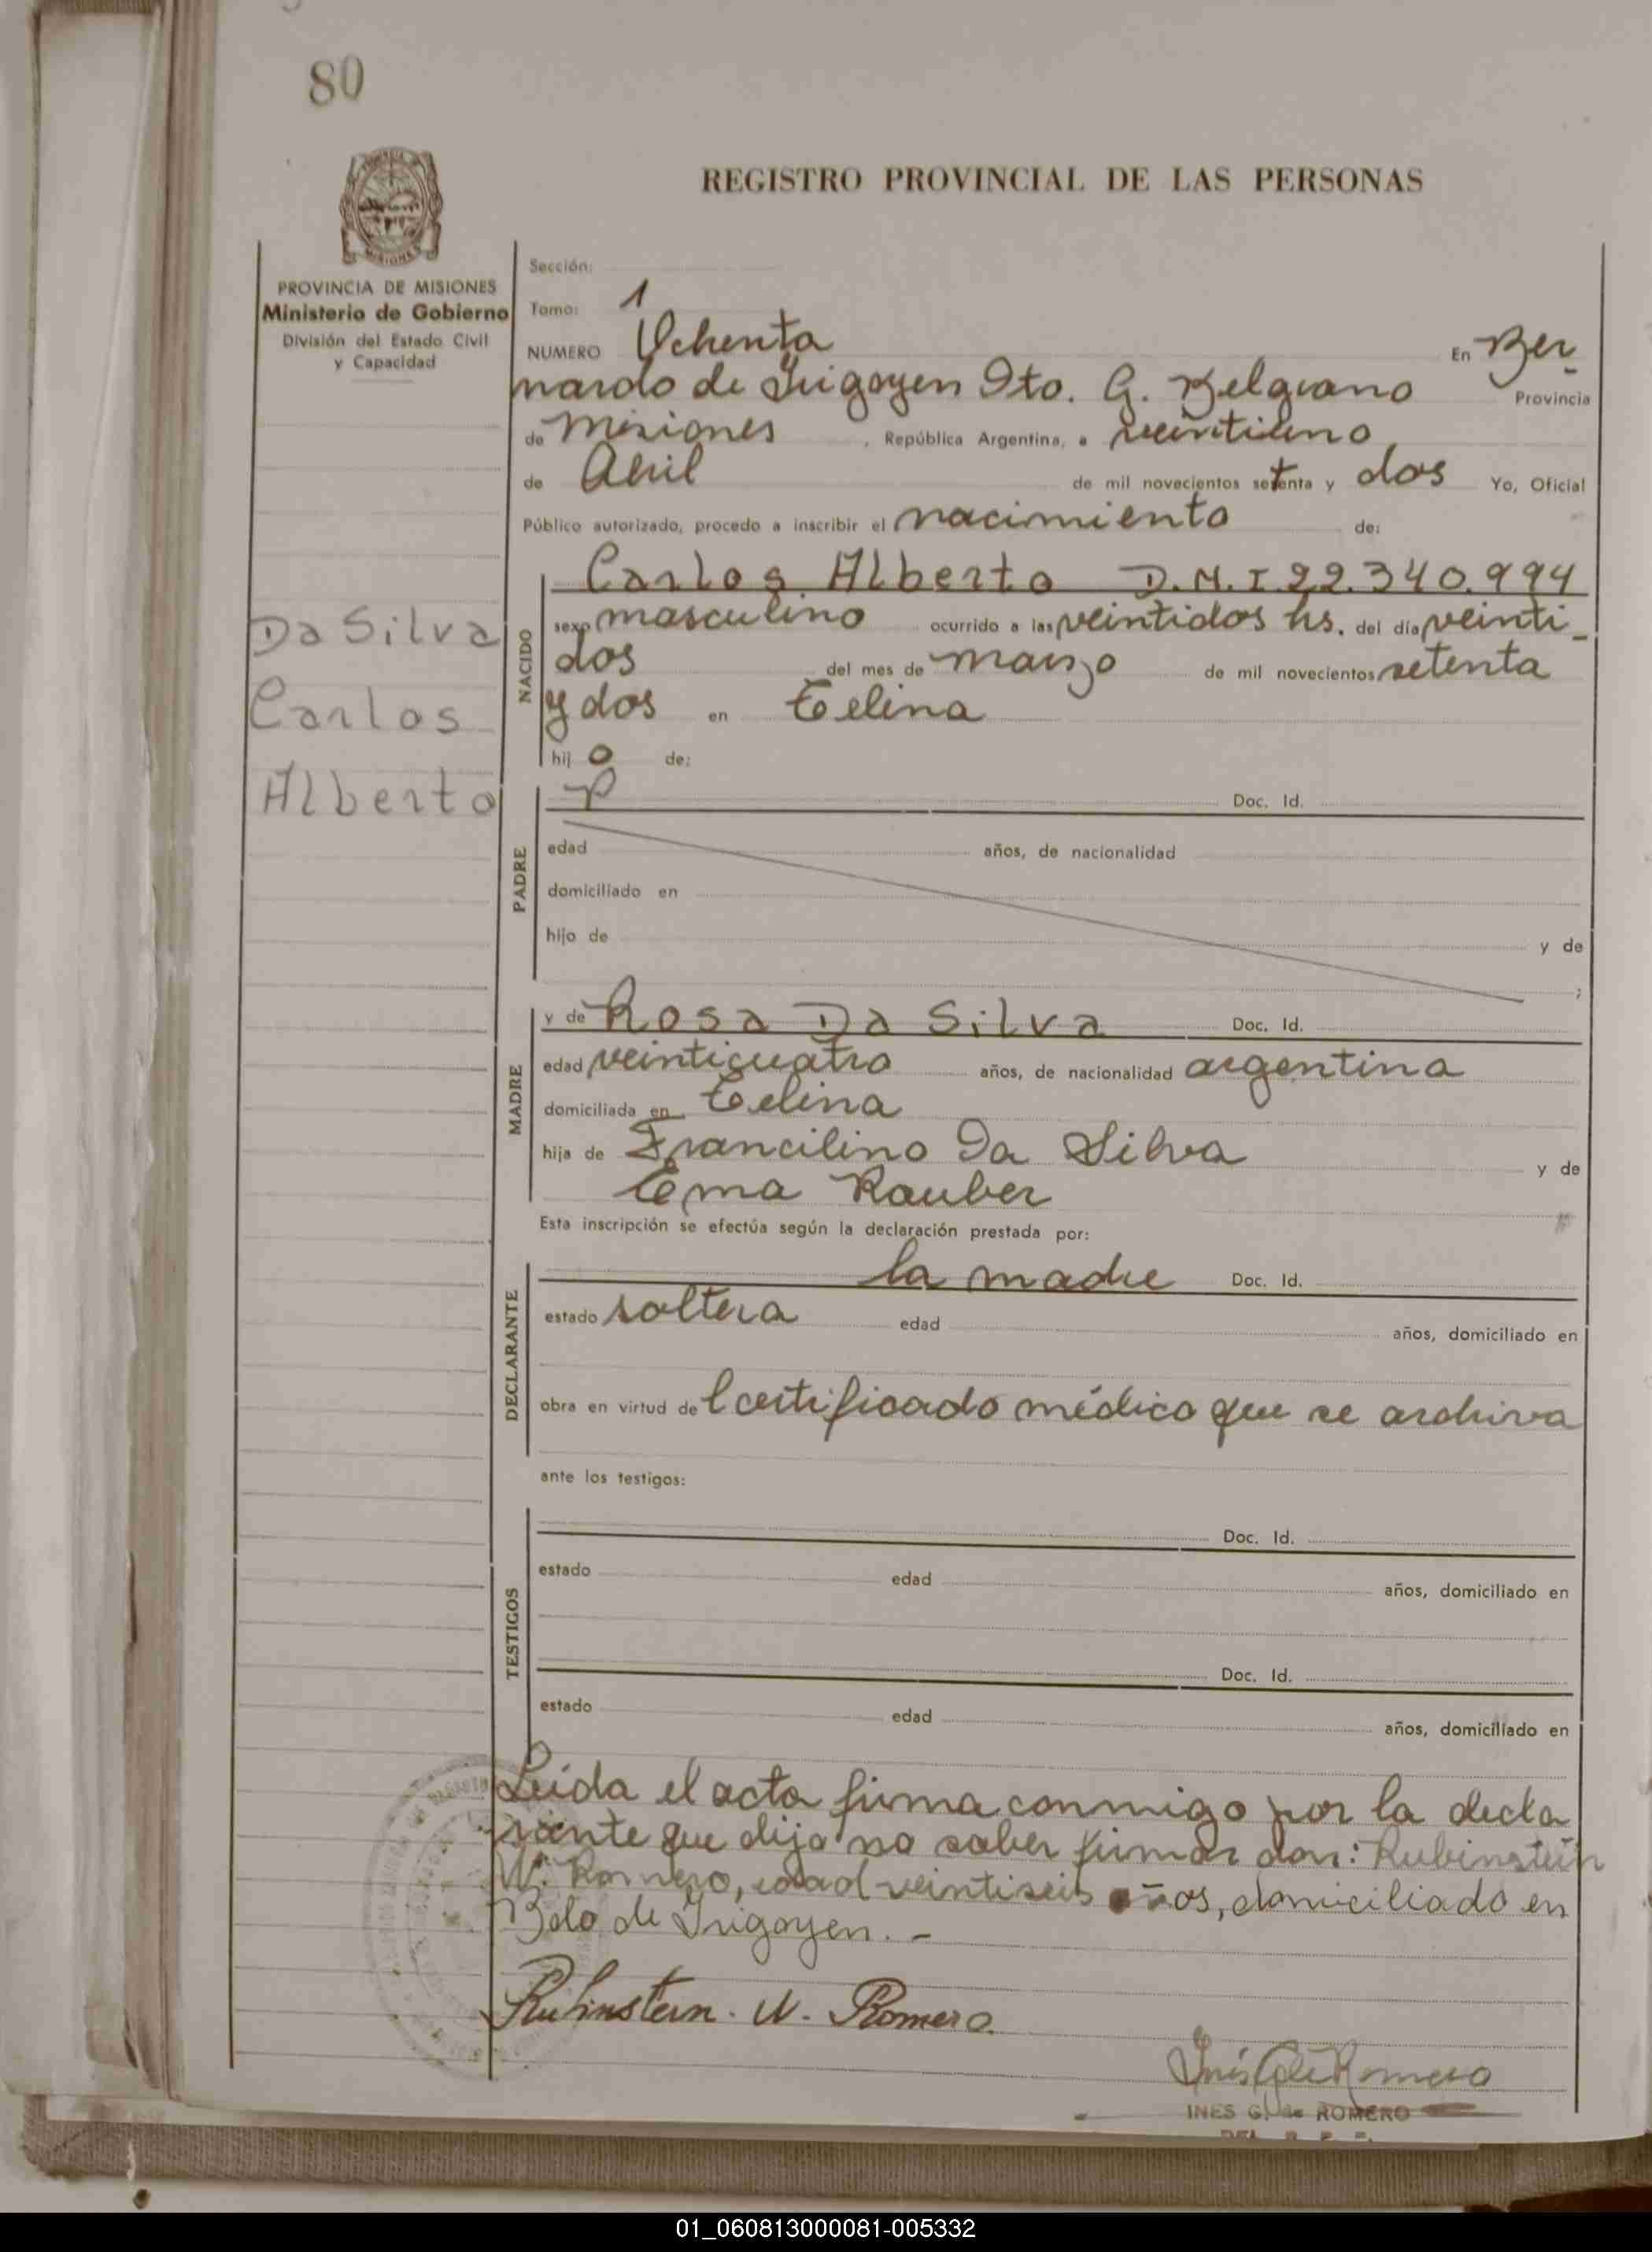 80
REGISTRO PROVINCIAL DE LAS PERSONAS
MISIONES
PROVINCIA DE MISIONES
Ministerio de Gobierno
División del Estado Civil
y Capacidad
Sección:
Tomo: 1
NUMERO Ochenta En Ber
nardo de Irigoyen Dto. G. Belgrano Provincia
de Misiones, República Argentina, a veintiuno
de Abril de mil novecientos setenta y dos Yo, Oficial
Público autorizado, procedo a inscribir el nacimiento de:
Carlos Alberto D.N.I 22.340.994
Da Silva
Carlos
Alberto
NACIDO
sexo masculino ocurrido a las veintidos hs. del día veinti-
dos del mes de marzo de mil novecientos setenta
y dos en Celina
hij o de:
PADRE
Doc. Id.
edad años, de nacionalidad
domiciliado en
hijo de y de
;
MADRE
y de Rosa Da Silva Doc. Id.
edad veinticuatro años, de nacionalidad argentina
domiciliada en Celina
hija de Francilino Da Silva y de
Ema Rauber
Esta inscripción se efectúa según la declaración prestada por:
DECLARANTE
la madre Doc. Id.
estado soltera edad años, domiciliado en
obra en virtud del certificado médico que se archiva
ante los testigos:
TESTIGOS
Doc. Id.
estado edad años, domiciliado en
Doc. Id.
estado edad años, domiciliado en
Leída el acta firma conmigo por la decla
rante que dijo no saber firmar don: Rubinstein
W. Romero, edad veintiseis años, domiciliado en
Bdo de Irigoyen. -
Rubinstein. W. Romero.
Inés G. de Romero
INES G. de ROMERO
01_060813000081-005332